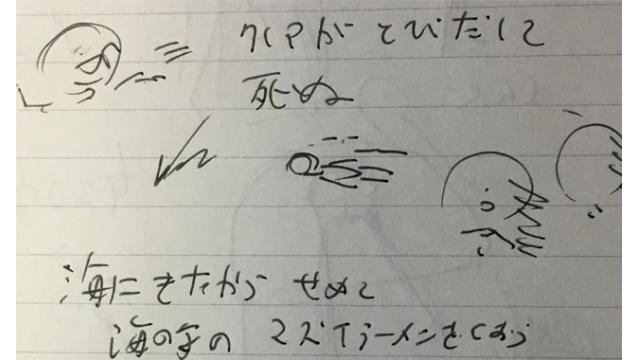 が とびだして
死ぬ
海にきたから せめて
海の家の マズイラーメンをくおう